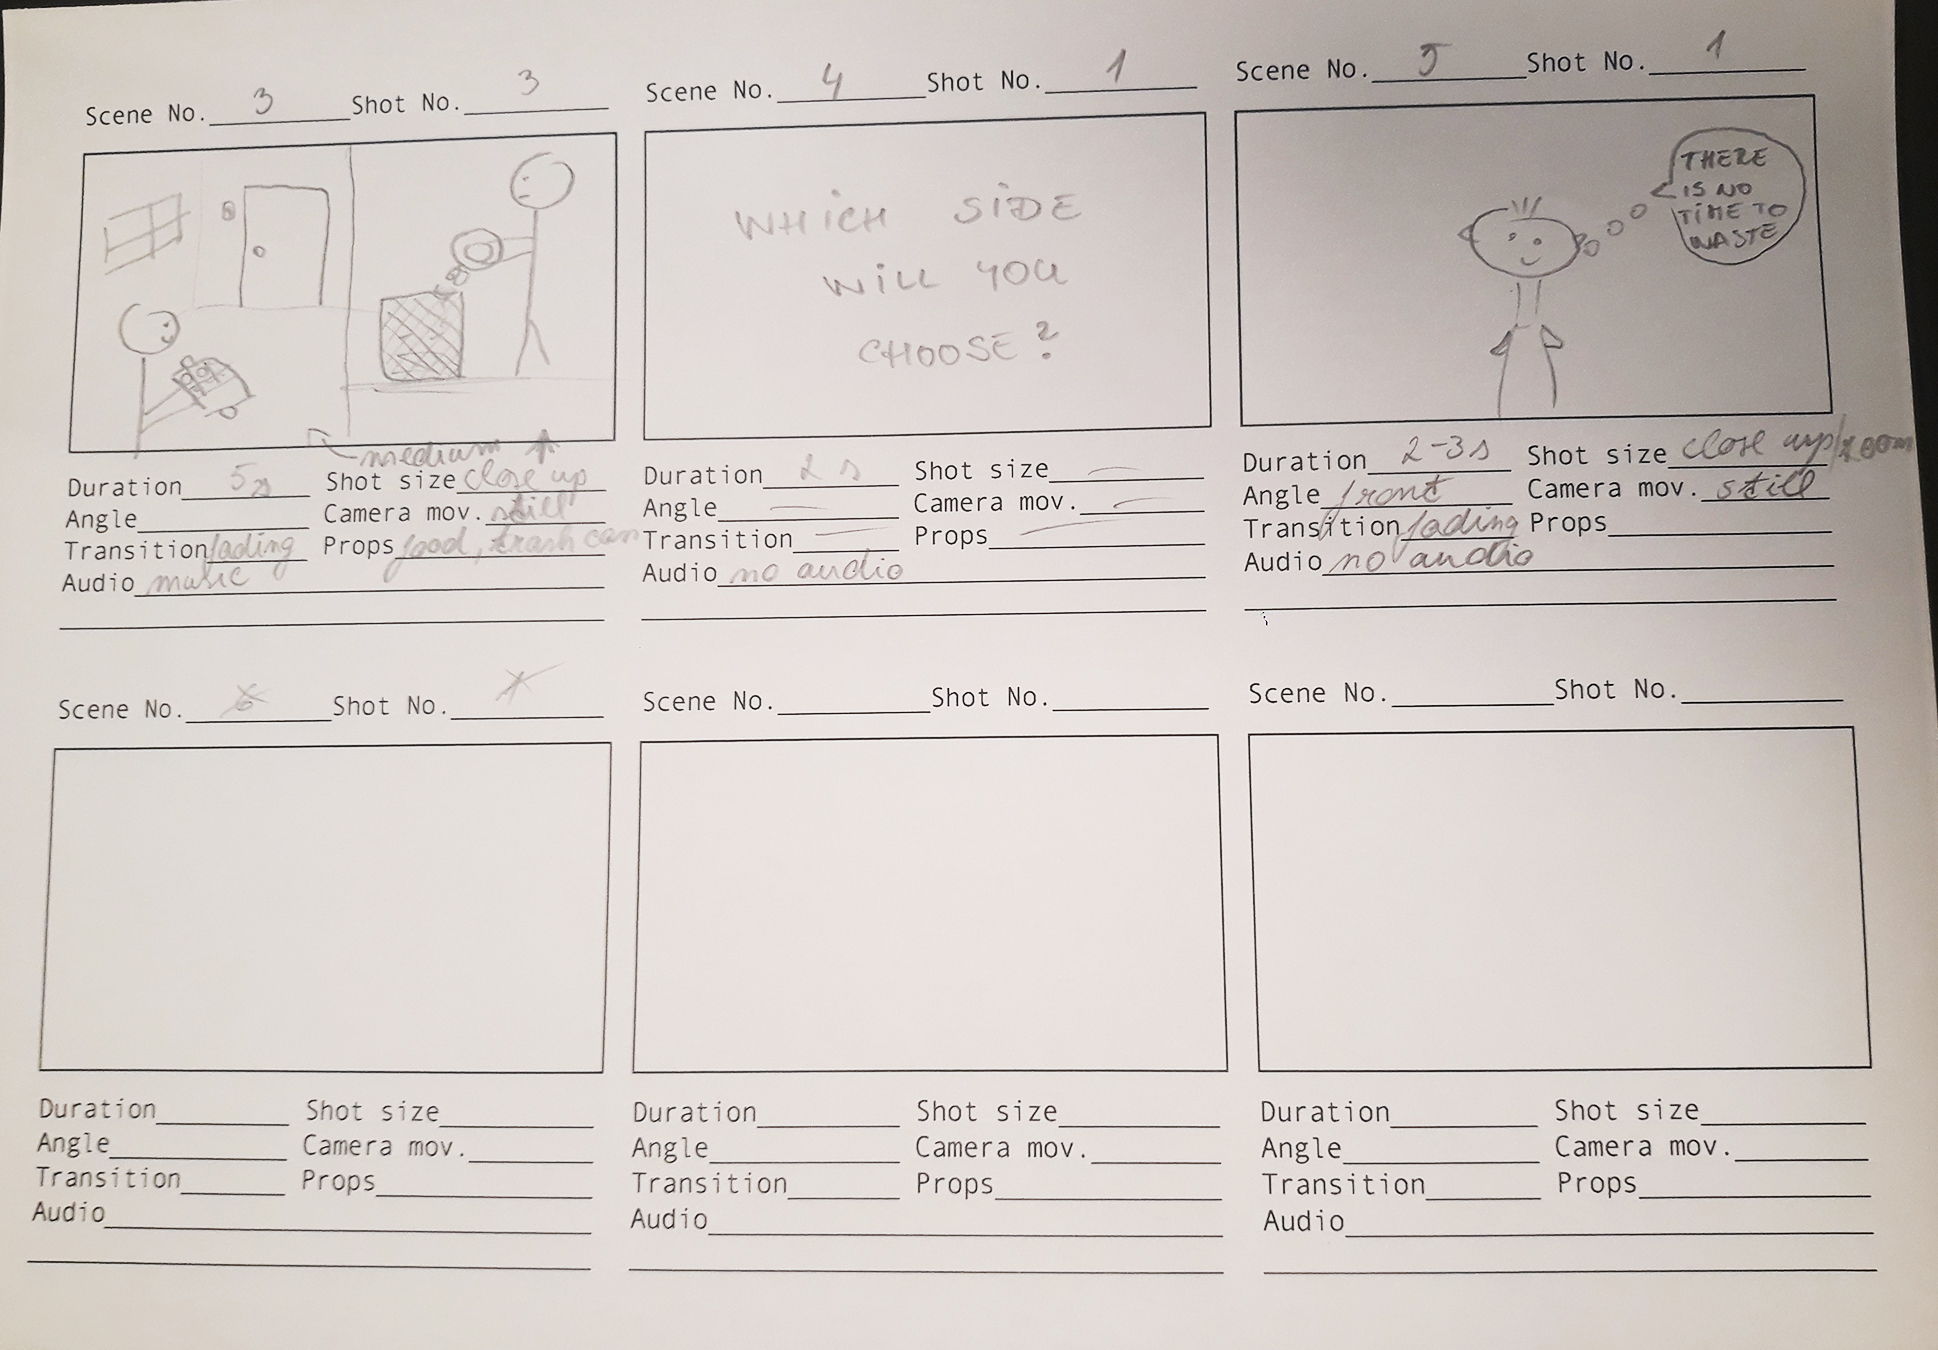 Scene No. 3 Shot No. 3
medium
Duration 5s Shot size close up
Angle Camera mov. still
Transition fading Props food, trash can
Audio music
Scene No. 4 Shot No. 1
WHICH SIDE
WILL YOU
CHOOSE?
Duration 2s Shot size —
Angle — Camera mov. —
Transition — Props —
Audio no audio
Scene No. 5 Shot No. 1
THERE
IS NO
TIME TO
WASTE
Duration 2-3s Shot size close up/zoom
Angle front Camera mov. still
Transition fading Props
Audio no audio
Scene No. 6 Shot No. 1
Duration Shot size
Angle Camera mov.
Transition Props
Audio
Scene No. Shot No.
Duration Shot size
Angle Camera mov.
Transition Props
Audio
Scene No. Shot No.
Duration Shot size
Angle Camera mov.
Transition Props
Audio